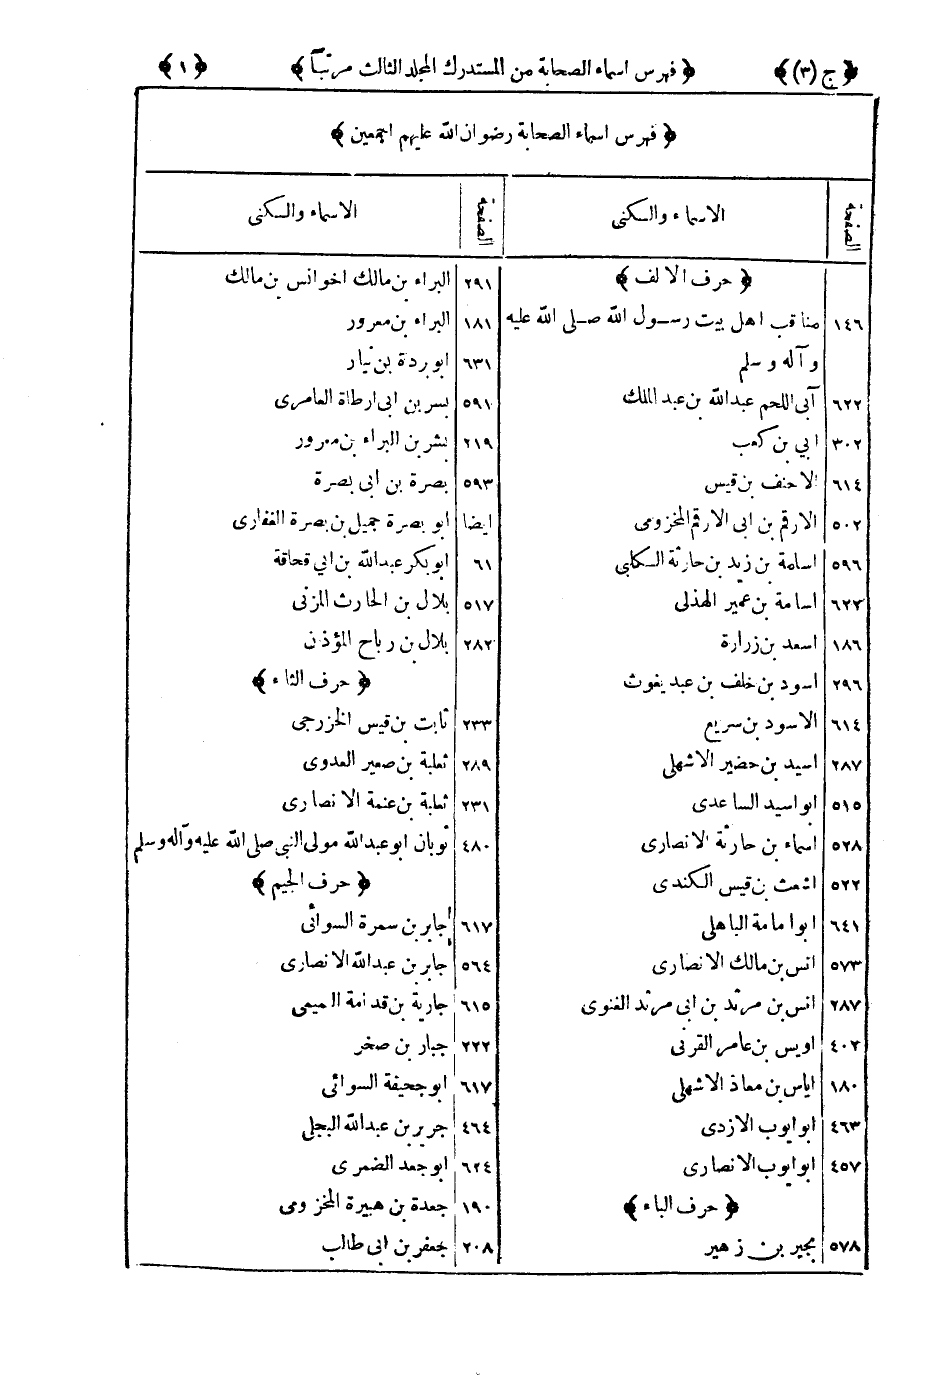 ﴿ ج (٣) ﴾ ﴿ فهرس اسماء الصحابة من المستدرك المجلد الثالث مرتباً ﴾ ﴿ ١ ﴾
﴿ فهرس اسماء الصحابة رضوان الله عليهم اجمعين ﴾
الصفحة الاسماء والسكنى
﴿ حرف الالف ﴾
١٤٦ مناقب اهل بيت رسول الله صلى الله عليه
وآله وسلم
٦٢٢ آبى اللحم عبدالله بن عبد الملك
٣٠٢ ابي بن كعب
٦١٤ الاحنف بن قيس
٥٠٢ الارقم بن ابى الارقم المخزومى
٥٩٦ اسامة بن زيد بن حارثة السكلبى
٦٢٣ اسامة بن عمير الهذلى
١٨٦ اسعد بن زرارة
٢٩٦ اسود بن خلف بن عبد يغوث
٦١٤ الاسود بن سريع
٢٨٧ اسيد بن حضير الاشهلى
٥١٥ ابو اسيد الساعدى
٥٢٨ اسماء بن حارثة الانصارى
٥٢٢ اشعث بن قيس الكندى
٦٤١ ابو امامة الباهلى
٥٧٣ انس بن مالك الانصارى
٢٨٧ انس بن مرثد بن ابى مرثد الغنوى
٤٠٢ اويس بن عامر القرنى
١٨٠ اياس بن معاذ الاشهلى
٤٦٣ ابو ايوب الازدى
٤٥٧ ابو ايوب الانصارى
﴿ حرف الباء ﴾
٥٧٨ بجير بن زهير
الصفحة الاسماء والسكنى
٢٩١ البراء بن مالك اخو انس بن مالك
١٨١ البراء بن معرور
٦٣١ ابو بردة بن نيار
٥٩١ بسر بن ابى ارطاة العامرى
٢١٩ بشر بن البراء بن معرور
٥٩٣ بصرة بن ابى بصرة
ايضا ابو بصرة جميل بن بصرة الغفارى
٦١ ابو بكر عبدالله بن ابي قحافة
٥١٧ بلال بن الحارث المزنى
٢٨٢ بلال بن رباح المؤذن
﴿ حرف الثاء ﴾
٢٣٣ ثابت بن قيس الخزرجى
٢٨٩ ثعلبة بن صعير العدوى
٢٣١ ثعلبة بن عنمة الانصارى
٤٨٠ ثوبان ابو عبدالله مولى النبى صلى الله عليه وآله وسلم
﴿ حرف الجيم ﴾
٦١٧ جابر بن سمرة السوائى
٥٦٤ جابر بن عبدالله الانصارى
٦١٥ جارية بن قدامة التميمى
٢٢٢ جبار بن صخر
٦١٧ ابو جحيفة السوائى
٤٦٤ جرير بن عبدالله البجلى
٦٢٤ ابو جعد الضمرى
١٩٠ جعدة بن هبيرة المخزومى
٢٠٨ جعفر بن ابى طالب